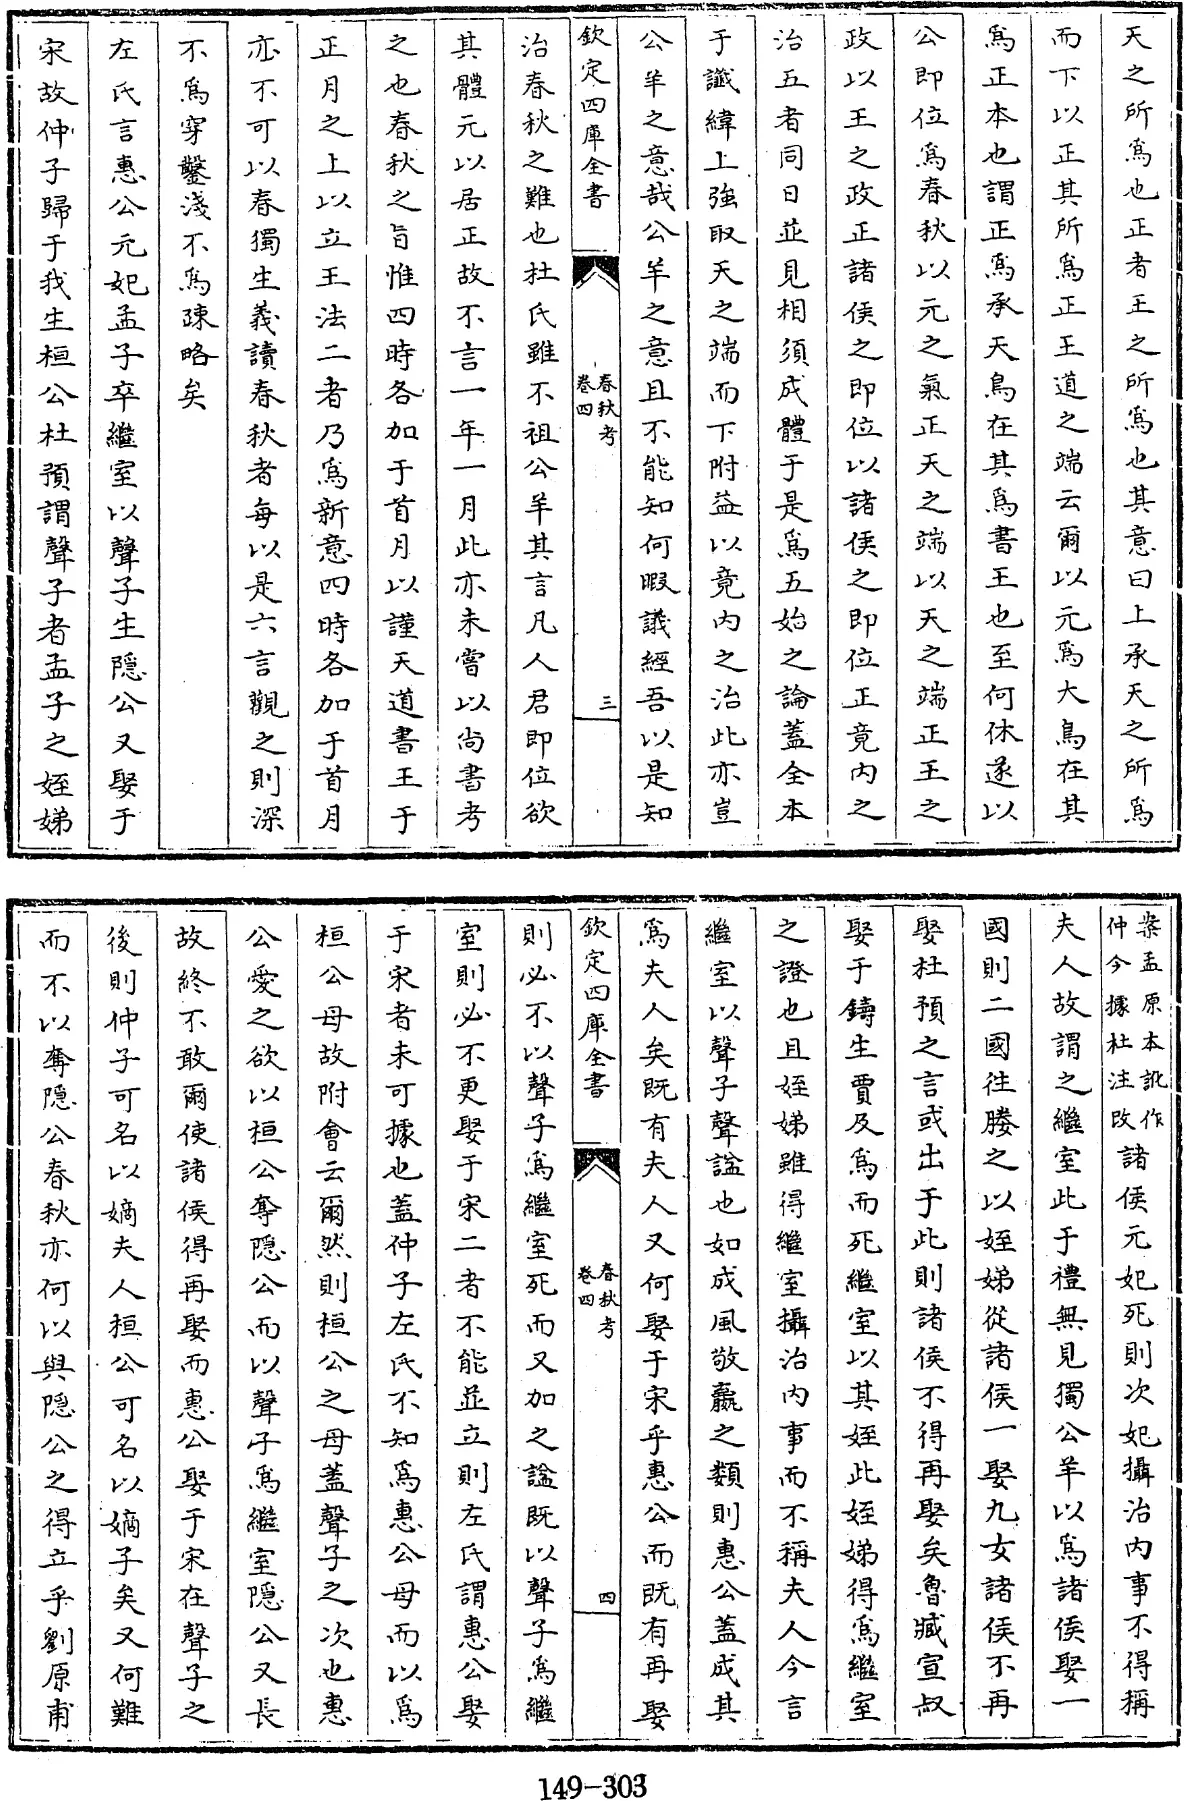 天之所爲也正者王之所爲也其意曰上承天之所爲
而下以正其所爲正王道之端云爾以元爲大焉在其
爲正本也謂正爲承天焉在其爲書王也至何休遂以
公即位爲春秋以元之氣正天之端以天之端正王之
政以王之政正諸侯之即位以諸侯之即位正竟内之
治五者同日並見相須成體于是爲五始之論蓋全本
于讖緯上強取天之端而下附益以竟内之治此亦豈
公羊之意哉公羊之意且不能知何暇議經吾以是知
欽定四庫全書
春秋考
卷四
三
治春秋之難也杜氏雖不祖公羊其言凡人君即位欲
其體元以居正故不言一年一月此亦未嘗以尚書考
之也春秋之旨惟四時各加于首月以謹天道書王于
正月之上以立王法二者乃爲新意四時各加于首月
亦不可以春獨生義讀春秋者每以是六言觀之則深
不爲穿鑿淺不爲疎略矣
左氏言惠公元妃孟子卒繼室以聲子生隱公又娶于
宋故仲子歸于我生桓公杜預謂聲子者孟子之姪娣
案孟原本訛作
仲今據杜注改
諸侯元妃死則次妃攝治内事不得稱
夫人故謂之繼室此于禮無見獨公羊以爲諸侯娶一
國則二國往媵之以姪娣從諸侯一娶九女諸侯不再
娶杜預之言或出于此則諸侯不得再娶矣魯臧宣叔
娶于鑄生賈及爲而死繼室以其姪此姪娣得爲繼室
之證也且姪娣雖得繼室攝治内事而不稱夫人今言
繼室以聲子聲諡也如成風敬嬴之類則惠公蓋成其
爲夫人矣既有夫人又何娶于宋乎惠公而既有再娶
欽定四庫全書
春秋考
卷四
四
則必不以聲子爲繼室死而又加之諡既以聲子爲繼
室則必不更娶于宋二者不能並立則左氏謂惠公娶
于宋者未可據也蓋仲子左氏不知爲惠公母而以爲
桓公母故附會云爾然則桓公之母蓋聲子之次也惠
公愛之欲以桓公奪隱公而以聲子爲繼室隱公又長
故終不敢爾使諸侯得再娶而惠公娶于宋在聲子之
後則仲子可名以嫡夫人桓公可名以嫡子矣又何難
而不以奪隱公春秋亦何以與隱公之得立乎劉原甫
149-303